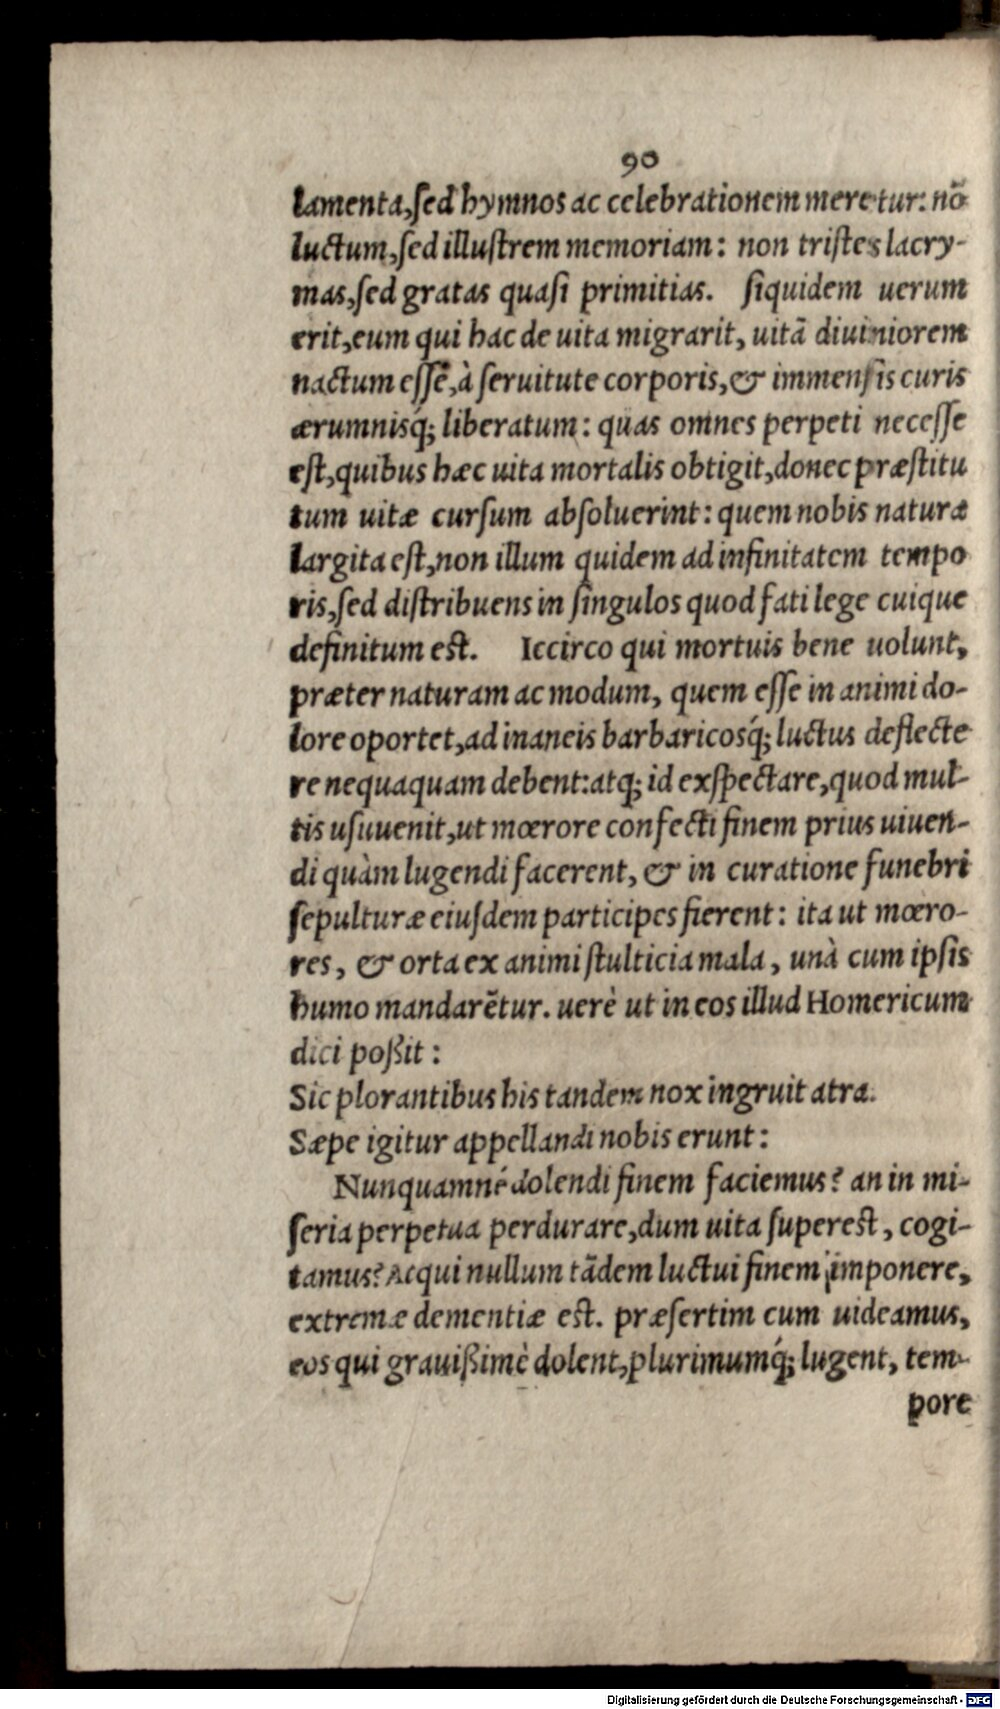 90
lamenta, sed hymnos ac celebrationem meretur: nō
luctum, sed illustrem memoriam: non tristes lacry-
mas, sed gratas quasi primitias. siquidem uerum
erit, eum qui hac de uita migrarit, uitā diuiniorem
nactum esse, à seruitute corporis, & immensis curis
ærumnisq́; liberatum: quas omnes perpeti necesse
est, quibus hæc uita mortalis obtigit, donec præstitu
tum uitæ cursum absoluerint: quem nobis natura
largita est, non illum quidem ad infinitatem tempo
ris, sed distribuens in singulos quod fati lege cuique
definitum est. Iccirco qui mortuis bene uolunt,
præter naturam ac modum, quem esse in animi do-
lore oportet, ad inaneis barbaricosq́; luctus deflecte
re nequaquam debent: atq; id exspectare, quod mul-
tis usuuenit, ut mœrore confecti finem prius uiuen-
di quàm lugendi facerent, & in curatione funebri
sepulturæ eiusdem participes fierent: ita ut mœro-
res, & orta ex animi stulticia mala, unà cum ipsis
humo mandarētur. uerè ut in eos illud Homericum
dici poßit:
Sic plorantibus his tandem nox ingruit atra.
Sæpe igitur appellandi nobis erunt:
Nunquamné dolendi finem faciemus? an in mi-
seria perpetua perdurare, dum uita superest, cogi-
tamus? Acqui nullum tādem luctui finem imponere,
extremæ dementiæ est. præsertim cum uideamus,
eos qui grauißimè dolent, plurimumq́; lugent, tem-
pore
Digitalisierung gefördert durch die Deutsche Forschungsgemeinschaft - DFG